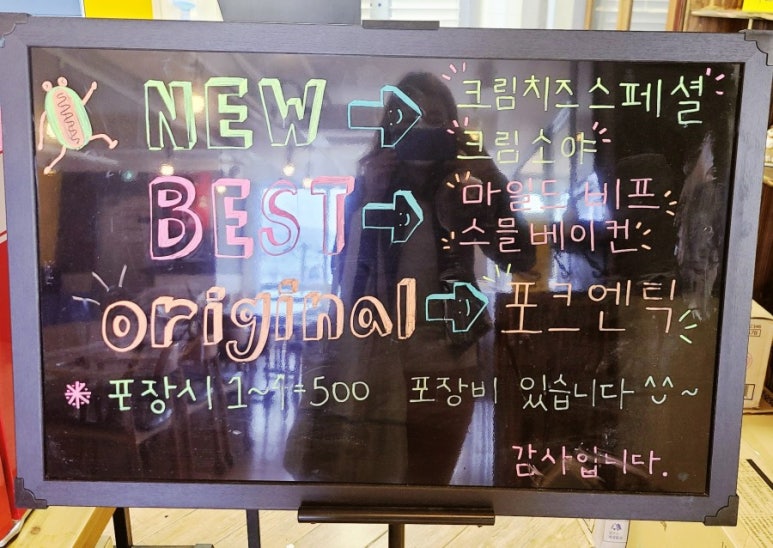 NEW 크림치즈스페셜
크림소야
BEST 마일드 비프
스믈베이컨
original 포크엔틱
※ 포장시 1~4=500 포장비 있습니다 ^^~
감사입니다.